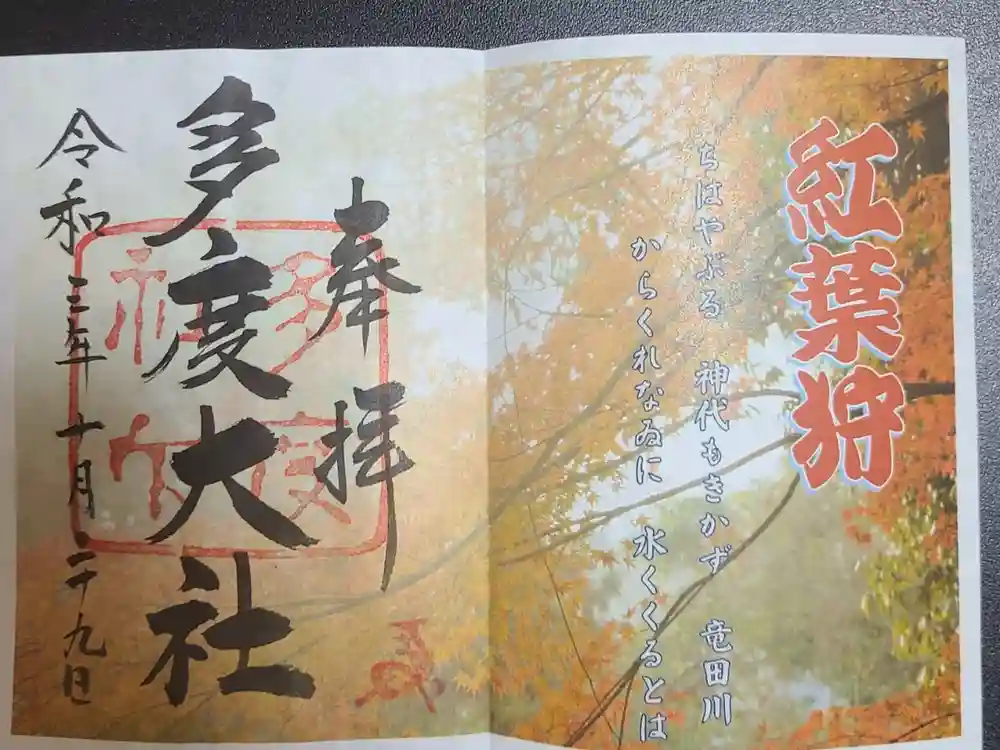 紅葉狩
ちはやぶる 神代もきかず 竜田川
からくれなゐに 水くくるとは
奉拝
多度大社
令和三年十月二十九日